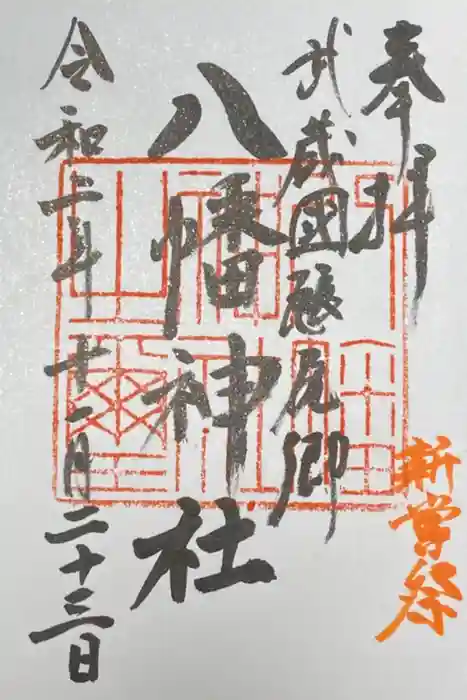 奉拝
武蔵國尾郷
八幡神社
令和二年十一月二十三日
新嘗祭